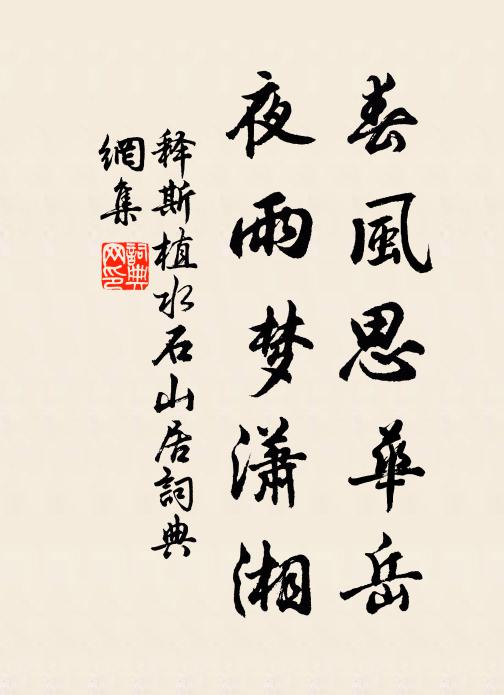 春風思華岳
夜雨梦潇湘
释斯植水石山居詞典
網集
詞典
网印